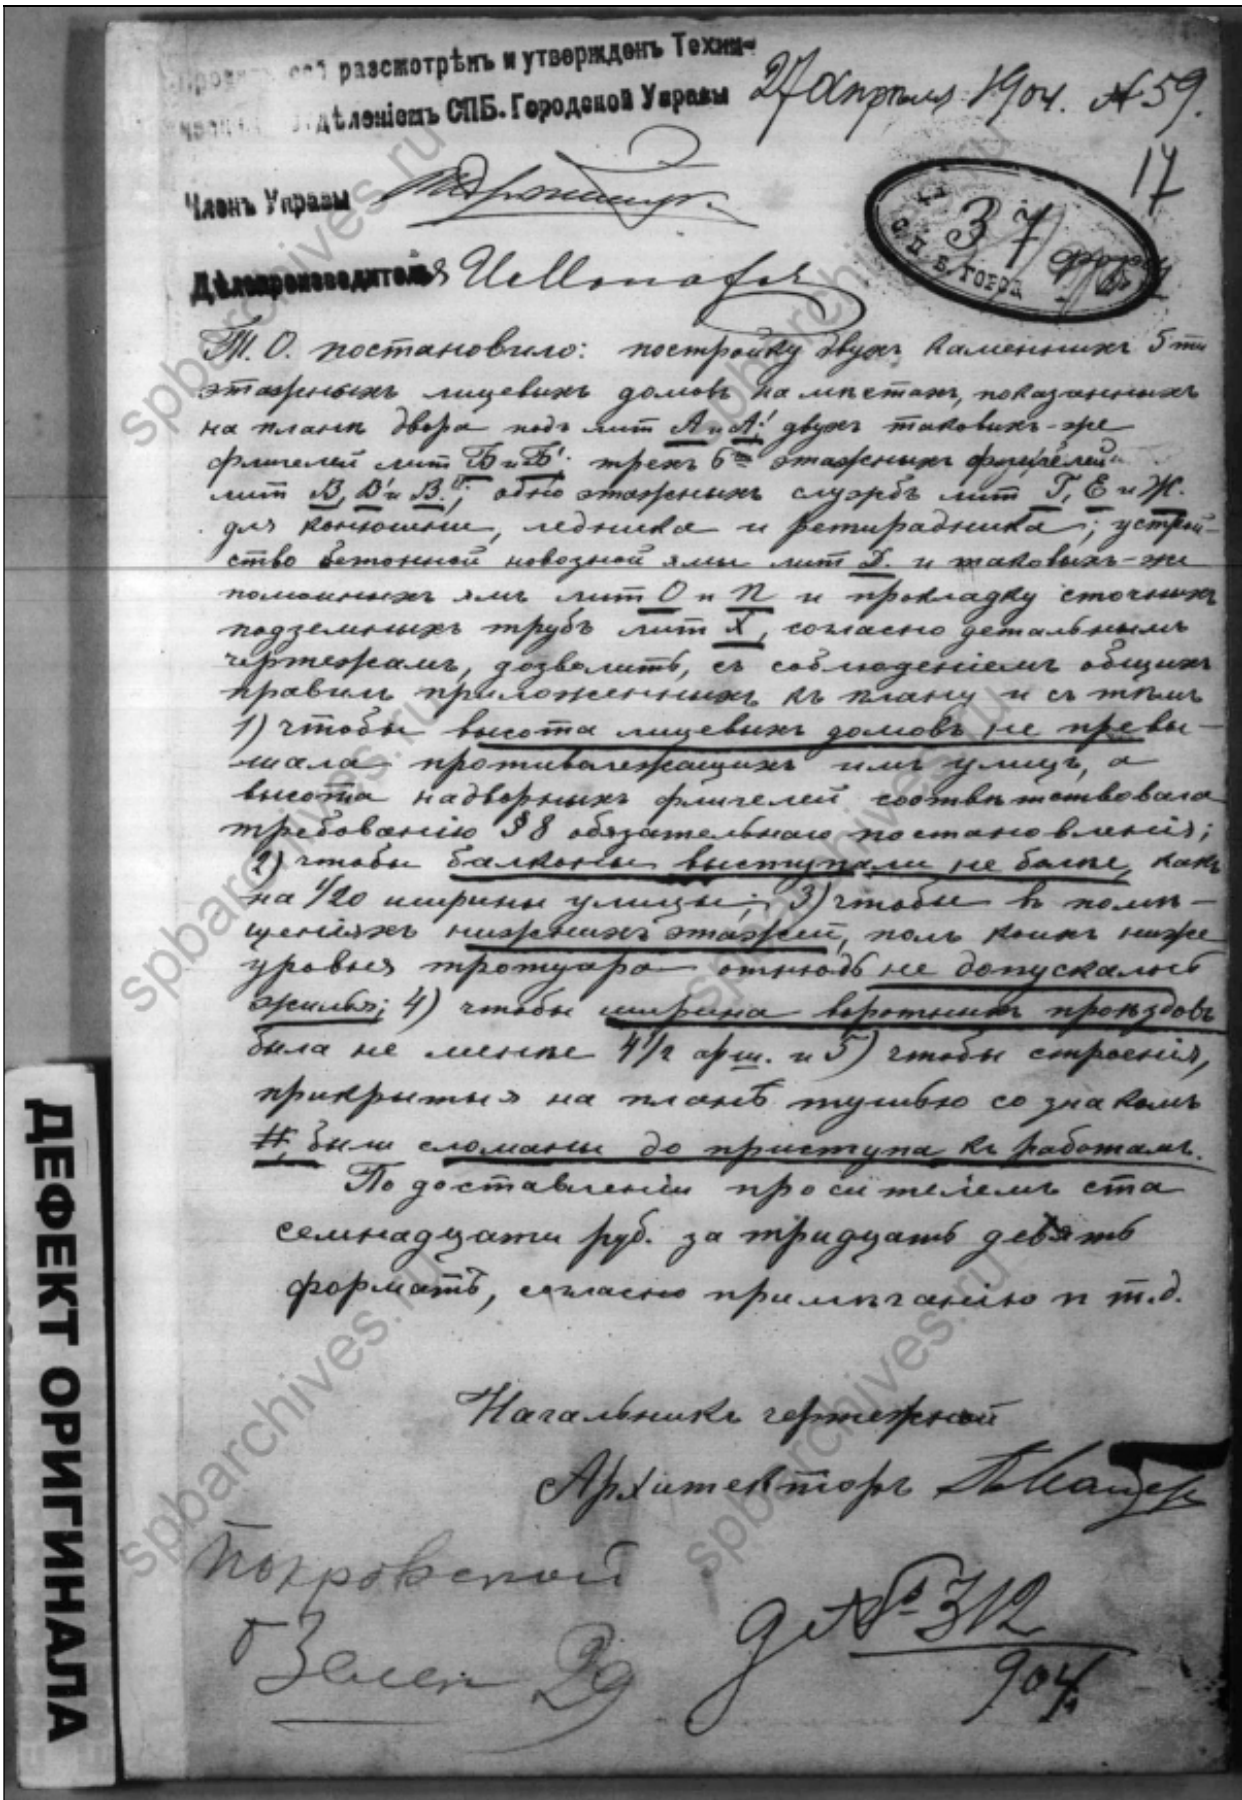 разсмотрѣнъ и утвержденъ Техни-
отдѣленіемъ СПБ. Городской Управы
27 Апрѣля 1904. № 59.
17
Членъ Управы
37
С.П.Б. ГОРОД
Дѣлопроизводителя
Т. О. постановило: постройку двухъ каменныхъ 5ти
этажныхъ лицевыхъ домовъ на мѣстахъ, показанныхъ
на планѣ двора подъ лит А и А'; двухъ таковыхъ-же
флигелей лит Б и Б'; трехъ 6ти этажныхъ флигелей
лит В, В' и В''; одно этажныхъ службъ лит Г, Е и Ж.
для конюшни, ледника и ретирадника; устрой-
ство бетонной навозной ямы лит Д. и таковыхъ-же
помойныхъ ямъ лит О и П и прокладку сточныхъ
подземныхъ трубъ лит Х, согласно детальнымъ
чертежамъ, дозволить, съ соблюденіемъ общихъ
правилъ приложенныхъ къ плану и съ тѣмъ
1) чтобы высота лицевыхъ домовъ не превы-
шала противолежащихъ имъ улицъ, а
высота надворныхъ флигелей соотвѣтствовала
требованію § 8 обязательнаго постановленія;
2) чтобы балконы выступали не болѣе, какъ
на 1/20 ширины улицы; 3) чтобы въ помѣ-
щеніяхъ нижнихъ этажей, полъ коихъ ниже
уровня тротуара отнюдь не допускалось
жилья; 4) чтобы ширина воротныхъ проѣздовъ
была не менѣе 4 1/2 арш. и 5) чтобы строенія,
прикрытыя на планѣ тушью со знакомъ
#, были сломаны до приступа къ работамъ.
По доставленіи просителемъ ста
семнадцати руб. за тридцать девять
форматъ, согласно примѣчанію п т.д.
Начальникъ чертежной
Архитекторъ
Покровской
Зелен 29
д № 312
904
ДЕФЕКТ ОРИГИНАЛА
spbarchives.ru
spbarchives.ru
spbarchives.ru
spbarchives.ru
spbarchives.ru
spbarchives.ru